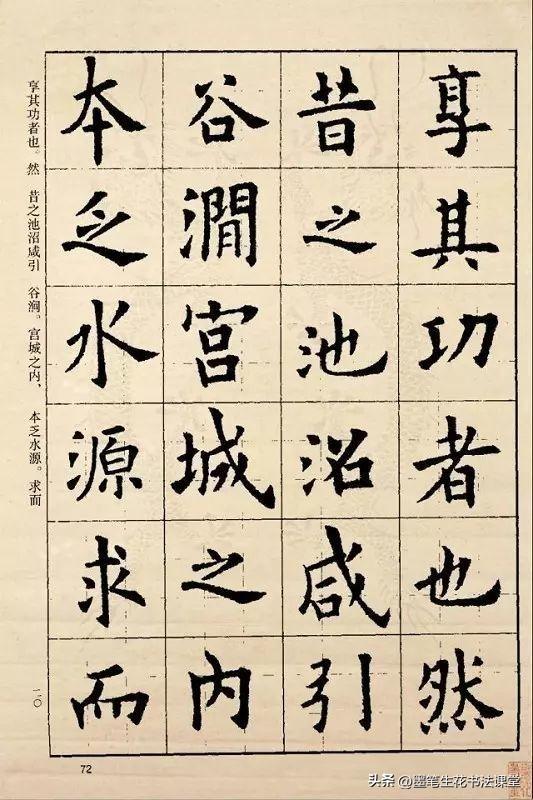 享其功者也然
昔之池沼咸引
谷澗宮城之內
本乏水源求而
享其功者也。然 昔之池沼咸引 谷涧。宫城之内、 本乏水源。求而
二〇
72
头条 @墨笔生花书法课堂